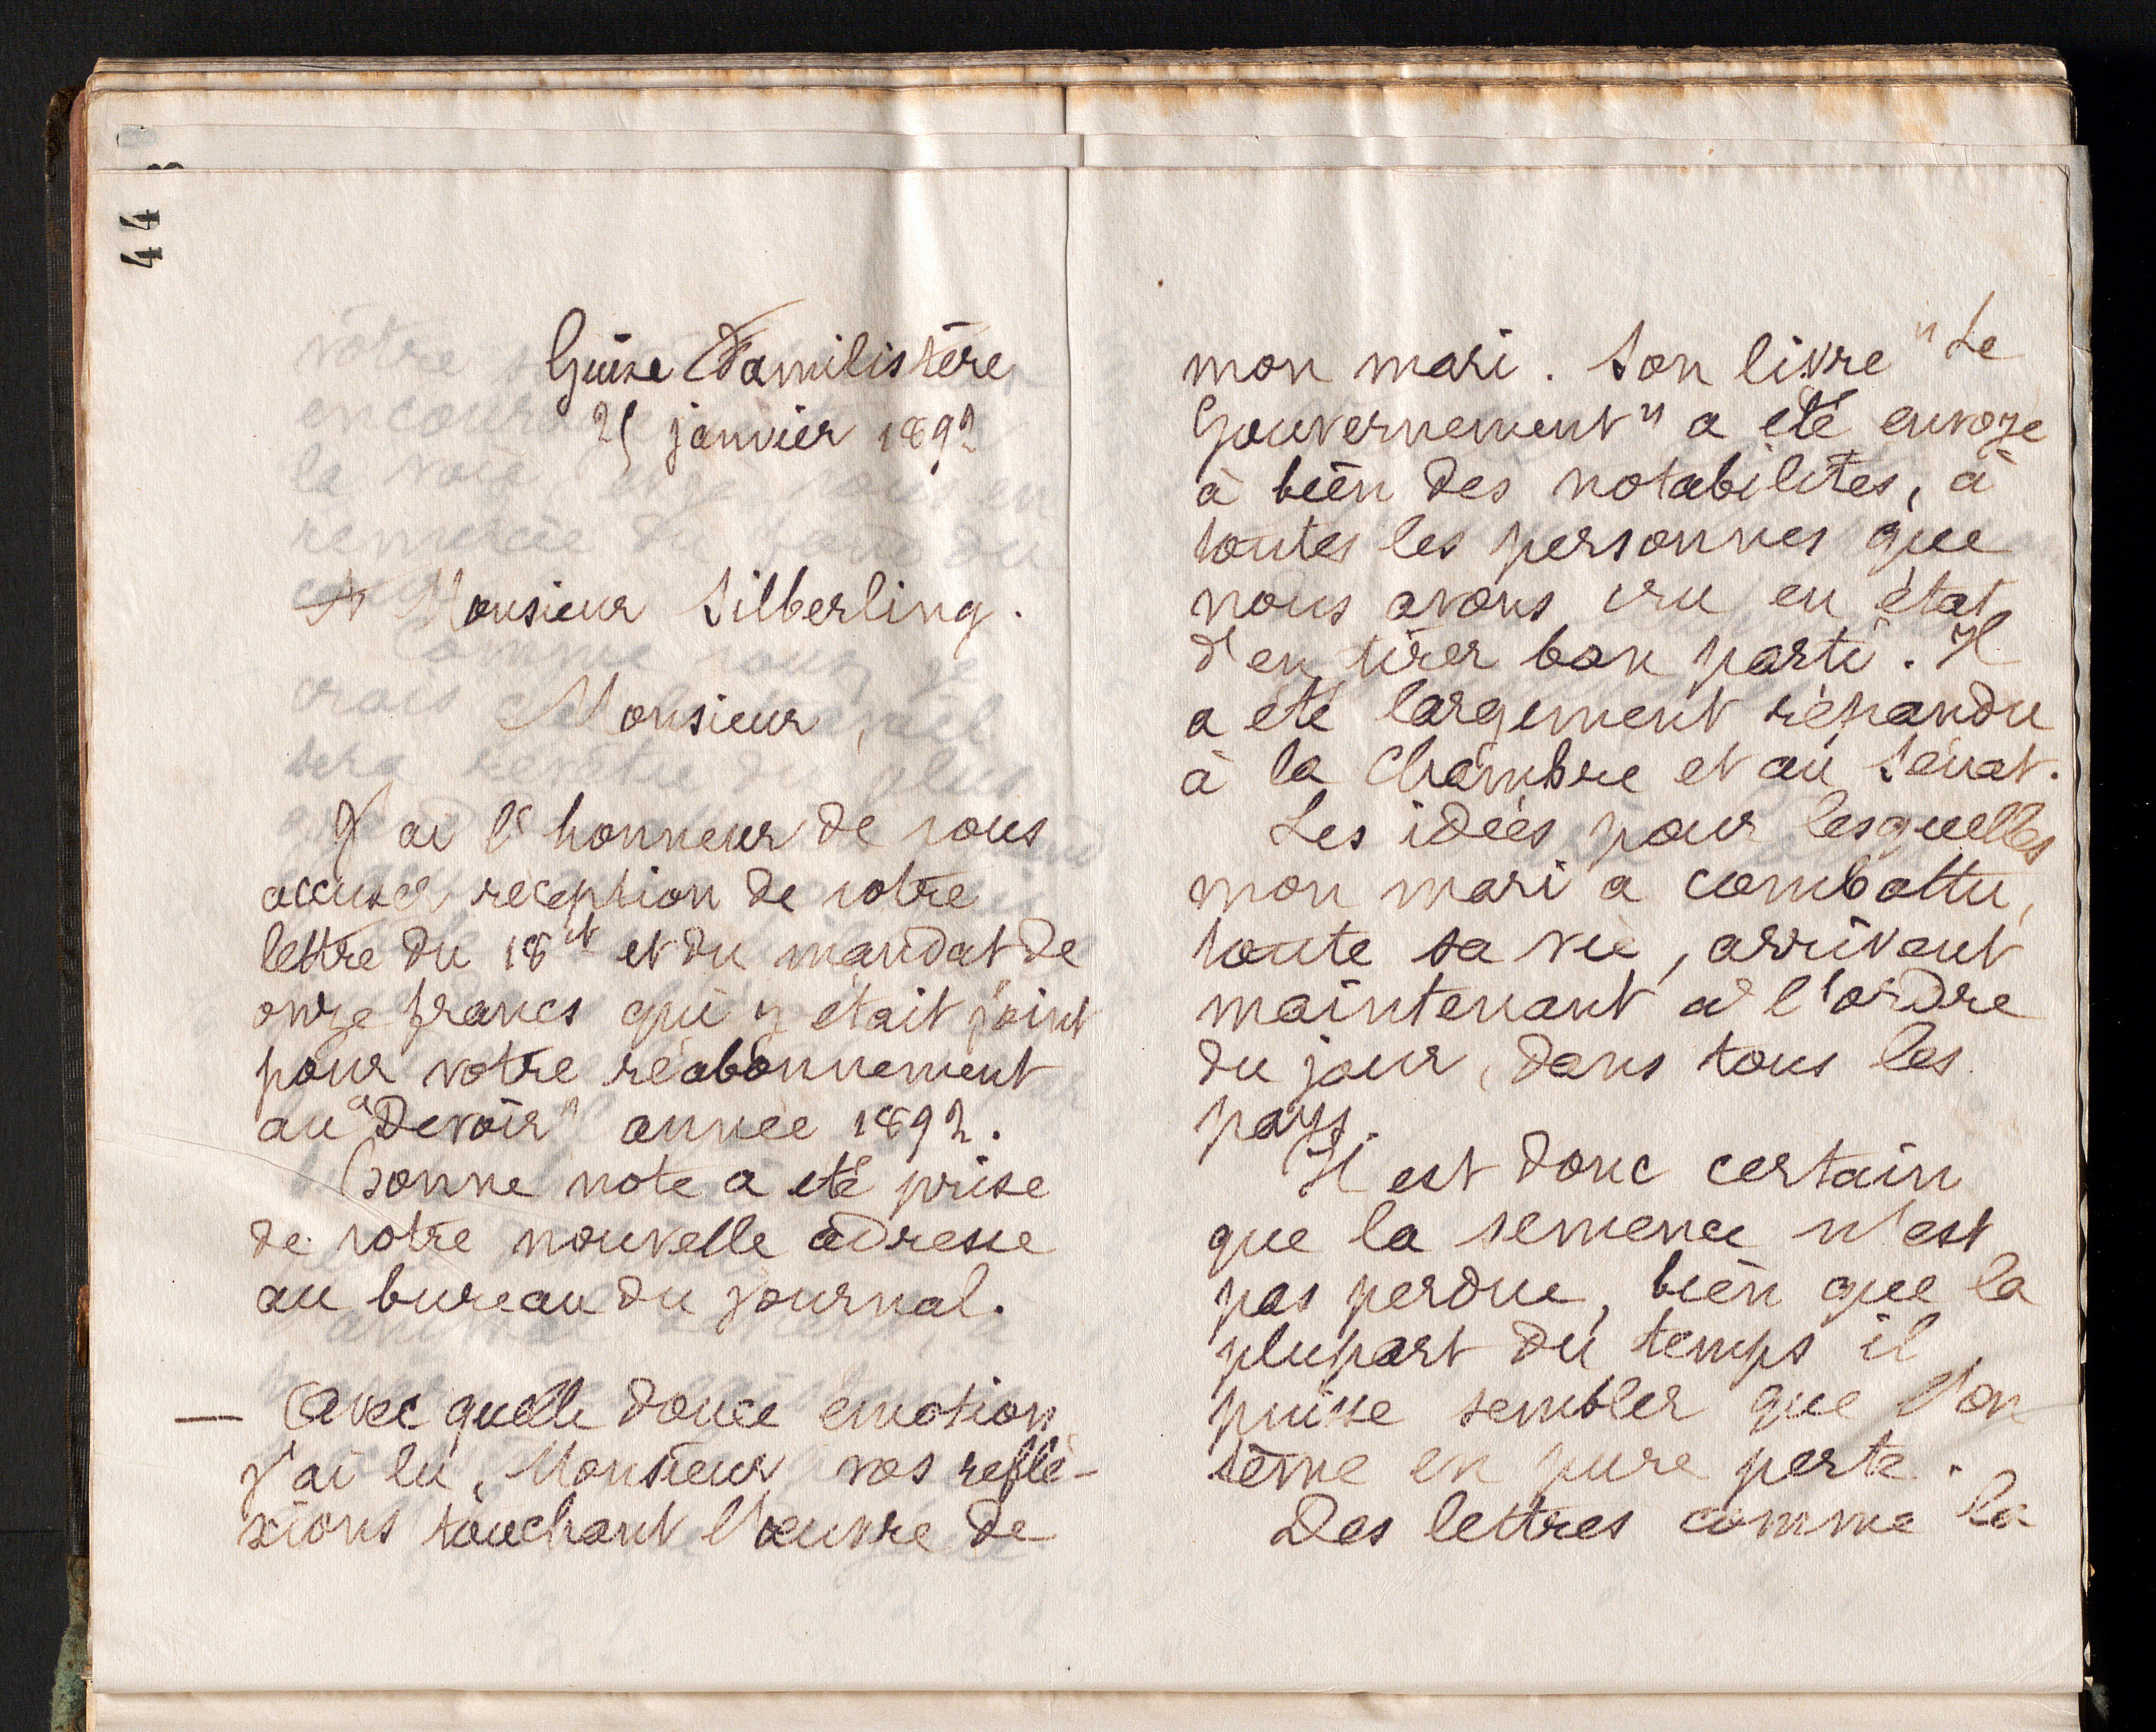 44
Guise Familistère
25 janvier 1892
A Monsieur Silberling.
Monsieur,
J'ai l'honneur de vous
accuser réception de votre
lettre du 18 ct et du mandat de
onze francs qui y était joint
pour votre réabonnement
au "Devoir" année 1892.
Bonne note a été prise
de votre nouvelle adresse
au bureau du journal.
— Avec quelle douce émotion
j'ai lu, Monsieur, vos réfle-
xions touchant l'œuvre de
mon mari. Son livre "Le
Gouvernement" a été envoyé
à bien des notabilités, à
toutes les personnes que
nous avons cru en état
d'en tirer bon parti. Il
a été largement répandu
à la Chambre et au Sénat.
Les idées pour lesquelles
mon mari a combattu,
toute sa vie, arrivent
maintenant à l'ordre
du jour, dans tous les
pays.
Il est donc certain
que la semence n'est
pas perdue, bien que la
plupart du temps il
puisse sembler que l'on
sème en pure perte.
Des lettres comme la